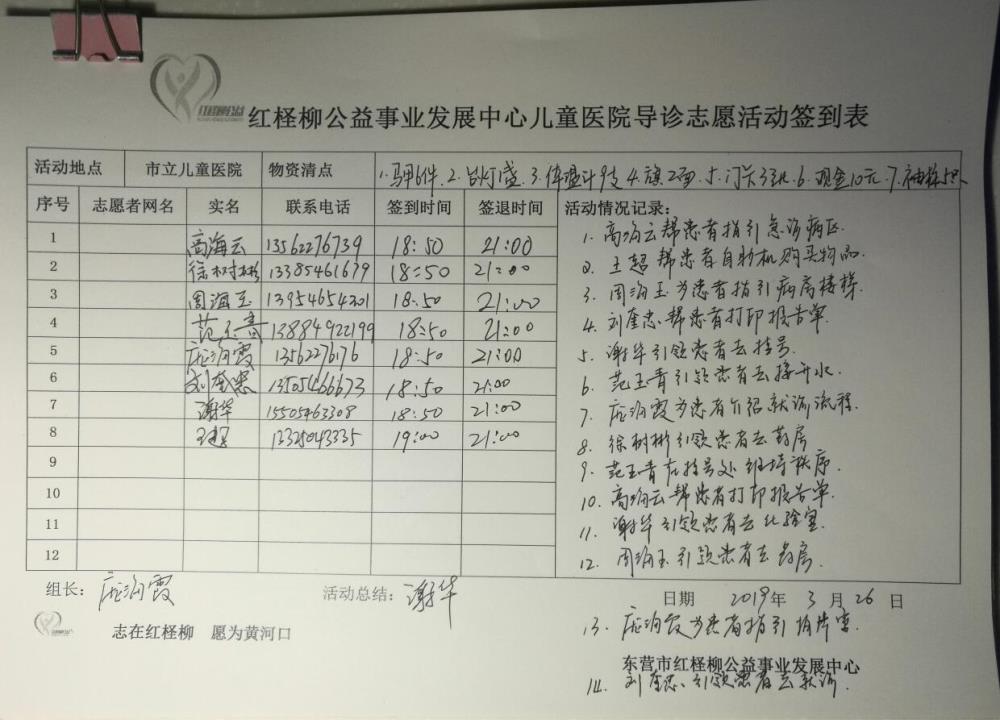 红柽柳公益事业发展中心儿童医院导诊志愿活动签到表
活动地点 市立儿童医院 物资清点 1.马甲6件.2.台灯1盏.3.体温计9支4.旗2面.5.门头3张.6.现金10元.7.袖标5个
序号 志愿者网名 实名 联系电话 签到时间 签退时间 活动情况记录:
1 高海云 13562276739 18:50 21:00
2 徐树彬 13385461679 18:50 21:00
3 周海玉 13954654201 18:50 21:00
4 范玉青 13884922199 18:50 21:00
5 庞海霞 13562276176 18:50 21:00
6 刘奎忠 13505466673 18:50 21:00
7 谢华 15505463308 18:50 21:00
8 王超 13325043335 19:00 21:00
9
10
11
12
1. 高海云帮患者指引急诊病区.
2. 王超帮患者自助机购买物品.
3. 周海玉为患者指引病房楼梯.
4. 刘奎忠帮患者打印报告单.
5. 谢华引领患者去挂号.
6. 范玉青引领患者去接开水.
7. 庞海霞为患者介绍就诊流程.
8. 徐树彬引领患者去药房
9. 范玉青在挂号处维持秩序.
10. 高海云帮患者打印报告单.
11. 谢华引领患者去化验室.
12. 周海玉引领患者去药房.
组长: 庞海霞 活动总结: 谢华 日期 2019年 3月 26日
13. 庞海霞为患者指引拍片室.
志在红柽柳 愿为黄河口
东营市红柽柳公益事业发展中心
14. 刘奎忠引领患者去就诊.